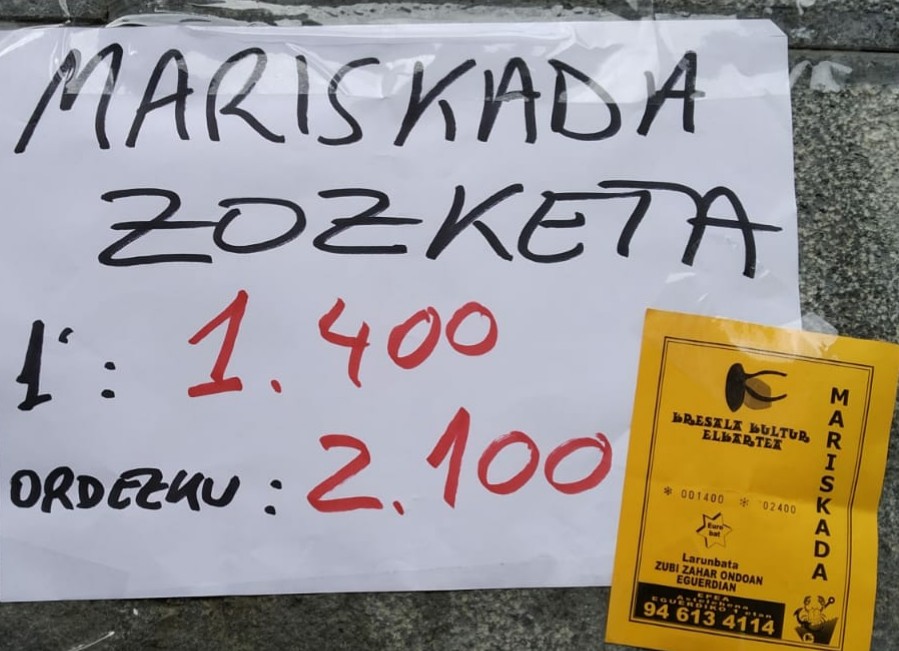 MARISKADA
ZOZKETA
1º: 1.400
ORDEZKU: 2.100
BRESALA KULTUR
ELKARTEA
MARISKADA
* 001400 * 02400
Euro
bat
Larunbata
ZUBI ZAHAR ONDOAN
EGUERDIAN
EPEA
EGUERDIKO
94 613 4114